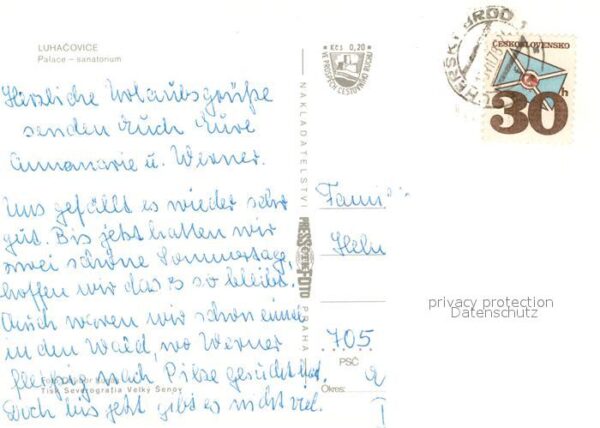 LUHAČOVICE
Palace – sanatorium
Kčs 0,20
VE PROSPĚCH CESTOVNÍHO RUCHU
UHERSKÝ BROD 1
ČESKOSLOVENSKO
30h
Herzliche Urlaubsgrüße
senden Euch Eure
Annemarie u. Werner.
Uns gefällt es wieder sehr
gut. Bis jetzt hatten wir
zwei schöne Sommertag,
hoffen wir das es so bleibt.
Auch waren wir schon einmal
in den Wald, wo Werner
fleißig nach Pilze gesucht hat.
Doch bis jetzt gibt es nicht viel.
NAKLADATELSTVÍ
PRESSFOTO
PRAHA
Fami
Helm
705
PSČ
Okres:
privacy protection
Datenschutz
Foto
Tisk Severografia Velký Šenov